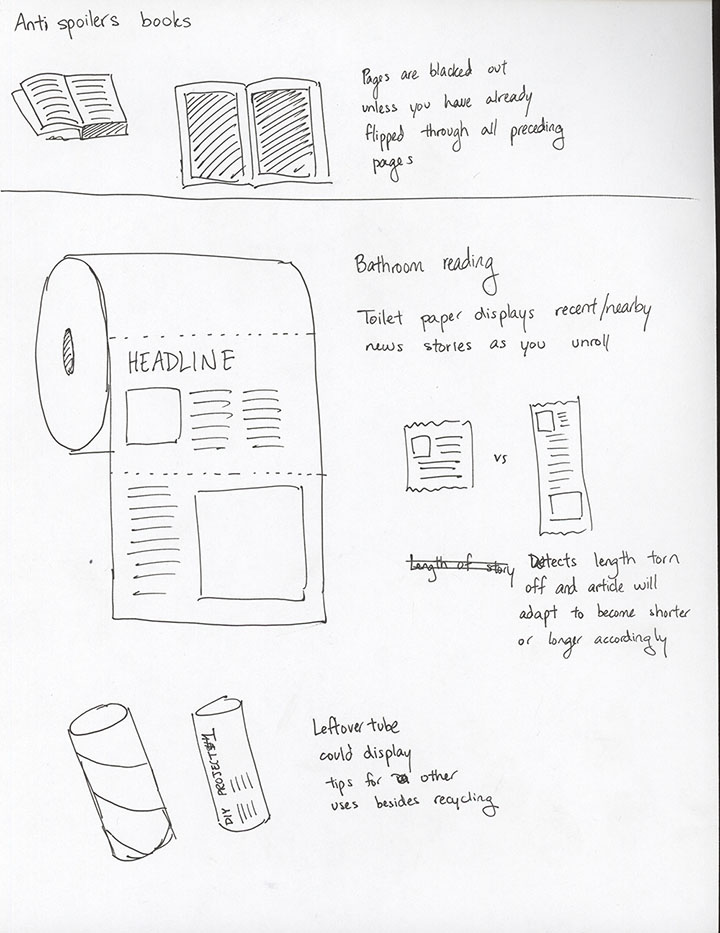 Anti spoilers books
Pages are blacked out
unless you have already
flipped through all preceding
pages
Bathroom reading
Toilet paper displays recent/nearby
news stories as you unroll
HEADLINE
vs
Length of story
Detects length torn
off and article will
adapt to become shorter
or longer accordingly
DIY PROJECT #1
Leftover tube
could display
tips for other
uses besides recycling